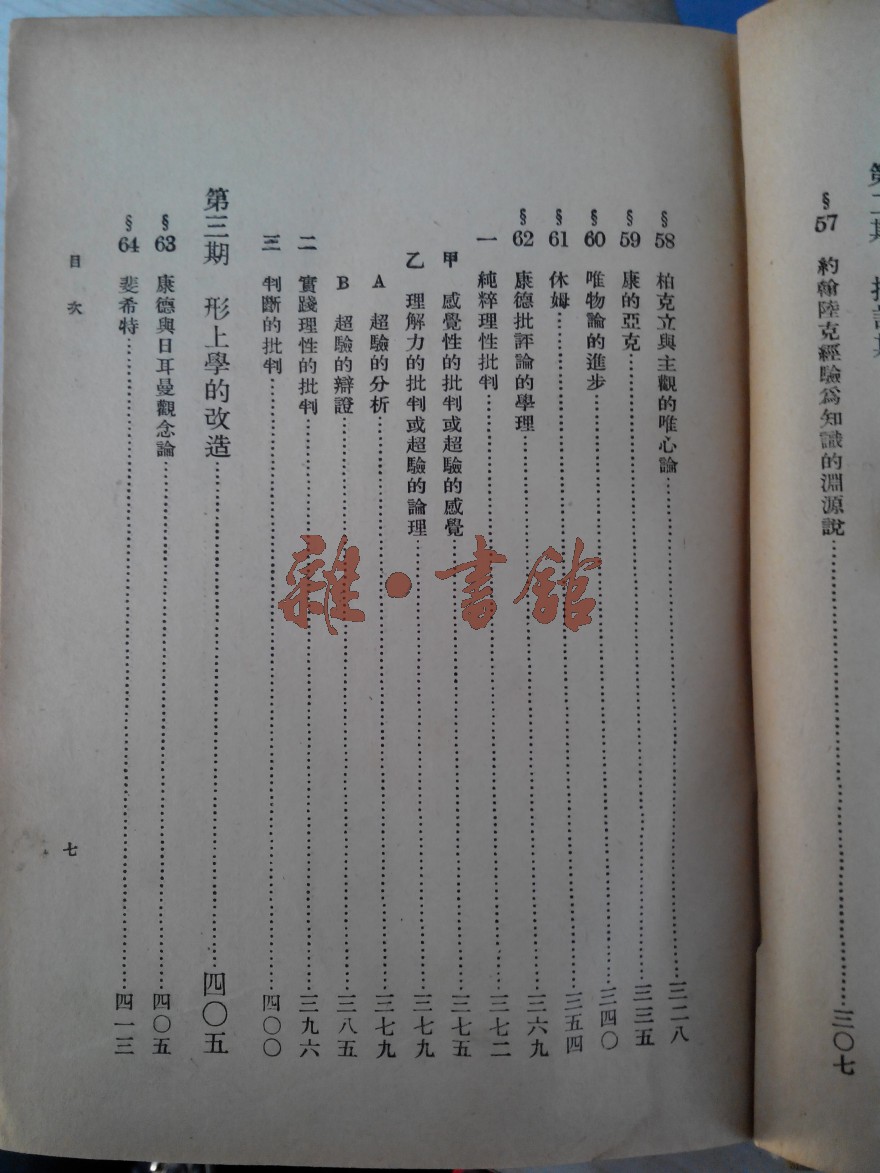 §57 約翰陸克經驗爲知識的淵源說……三〇七
§58 柏克立與主觀的唯心論……三二八
§59 康的亞克……三三五
§60 唯物論的進步……三四〇
§61 休姆……三五四
§62 康德批評論的學理……三六九
一 純粹理性批判……三七二
甲 感覺性的批判或超驗的感覺……三七五
乙 理解力的批判或超驗的論理……三七九
A 超驗的分析……三七九
B 超驗的辯證……三八五
二 實踐理性的批判……三九六
三 判斷的批判……四〇〇
第三期 形上學的改造……四〇五
§63 康德與日耳曼觀念論……四〇五
§64 斐希特……四一三
目次
七
雜·書館